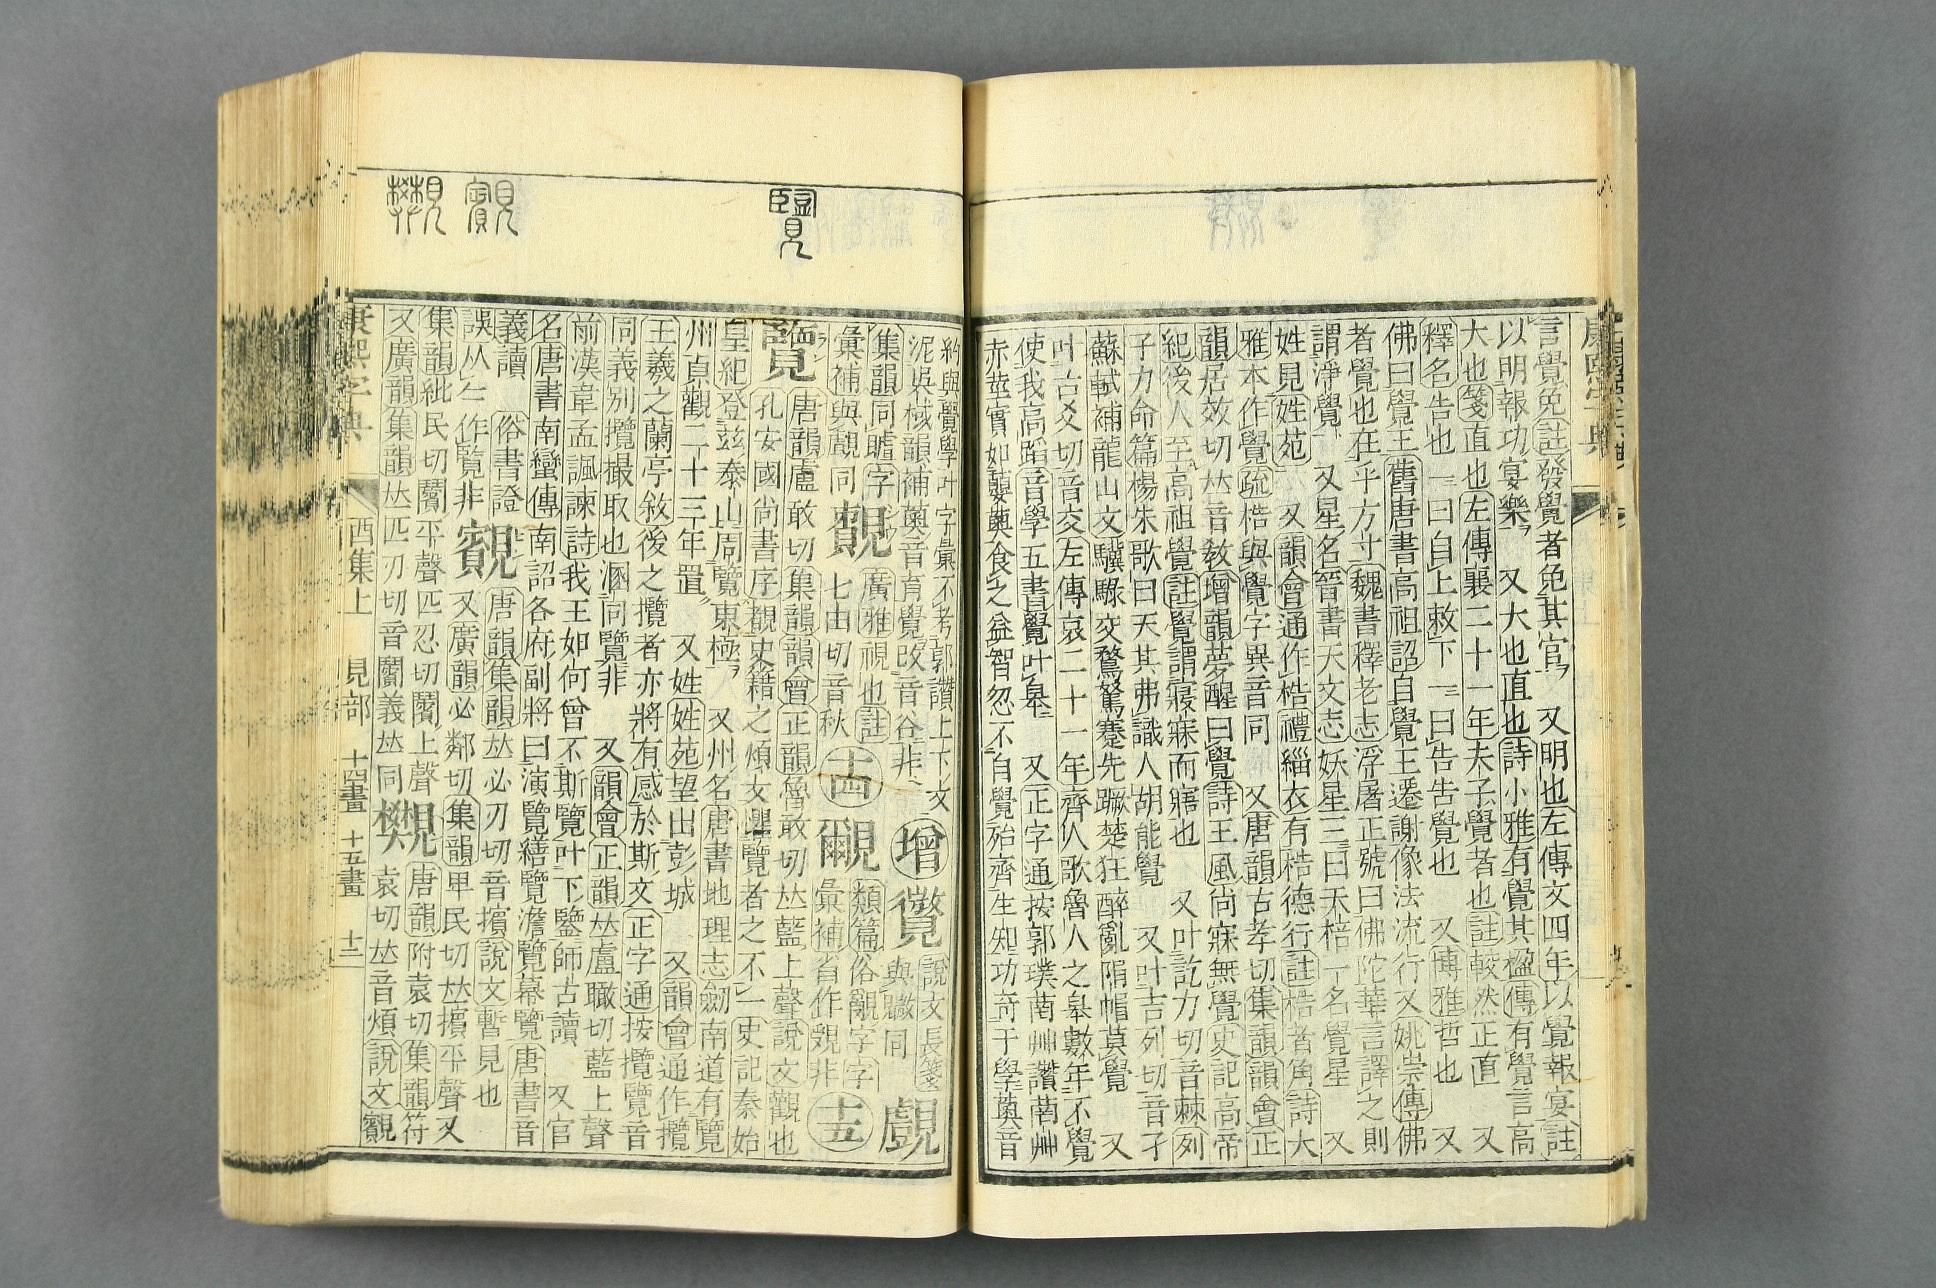 言覺免註發覺者免其官又明也左傳文四年以覺報宴註
以明報功宴樂又大也直也詩小雅有覺其楹傳有覺言高
大也箋直也左傳襄二十一年夫子覺者也註較然正直又
釋名告也一曰自上敕下一曰告告覺也又博雅哲也又
佛曰覺王舊唐書高祖詔自覺王遷謝像法流行又姚崇傳佛
者覺也在乎方寸魏書釋老志浮屠正號曰佛陀華言譯之則
謂淨覺又星名晉書天文志妖星三曰天棓一名覺星又
姓見姓苑又韻會通作梏禮緇衣有梏德行註梏者角詩大
雅本作覺疏梏與覺字異音同又唐韻古孝切集韻韻會正
韻居效切𠀤音敎增韻夢醒曰覺詩王風尚寐無覺史記高帝
紀後人至高祖覺註覺謂寢寐而寤也又叶訖力切音棘列
子力命篇楊朱歌曰天其弗識人胡能覺又叶吉列切音孑
蘇軾補龍山文驥騄交鶩駑蹇先蹶楚狂醉亂隕帽莫覺又
叶古爻切音交左傳哀二十一年齊人歌魯人之皋數年不覺
使我高蹈音學五書覺叶皋又正字通按郭璞萳艸讚萳艸
赤莖實如蘡薁食之益智忽不自覺殆齊生知功奇于學薁音
約與覺學叶字彙不考郭讚上下文
泥吳棫韻補薁音育覺改音谷非
增
覺
說文長箋
與䚇同
覷
集韻同䁦字
彙補與覰同
覩
廣雅視也註
七由切音秋
十四
覼
類篇俗覶字字
彙補省作覙非
十五
覽
唐韻盧敢切集韻韻會正韻魯敢切𠀤藍上聲說文觀也
孔安國尚書序覩史籍之煩文懼覽者之不一史記秦始
皇紀登茲泰山周覽東極又州名唐書地理志劒南道有覽
州貞觀二十三年置又姓姓苑望出彭城又韻會通作攬
王羲之蘭亭敘後之攬者亦將有感於斯文正字通按攬覽音
同義別攬撮取也溷同覽非又韻會正韻𠀤盧瞰切藍上聲
前漢韋孟諷諫詩我王如何曾不斯覽叶下鑒師古讀又官
名唐書南蠻傳南詔各府副將曰演覽繕覽澹覽幕覽唐書音
義讀俗書證
誤从𠂉作覧非
覿
唐韻集韻𠀤必刃切音擯說文暫見也
又廣韻必鄰切集韻卑民切𠀤擯平聲又
集韻紕民切闠平聲匹忍切闠上聲
又廣韻集韻𠀤匹刃切音闠義𠀤同
䙪
唐韻附袁切集韻符
袁切𠀤音煩說文覿
康熙字典
酉集上
見部
十四畫
十五畫
十三